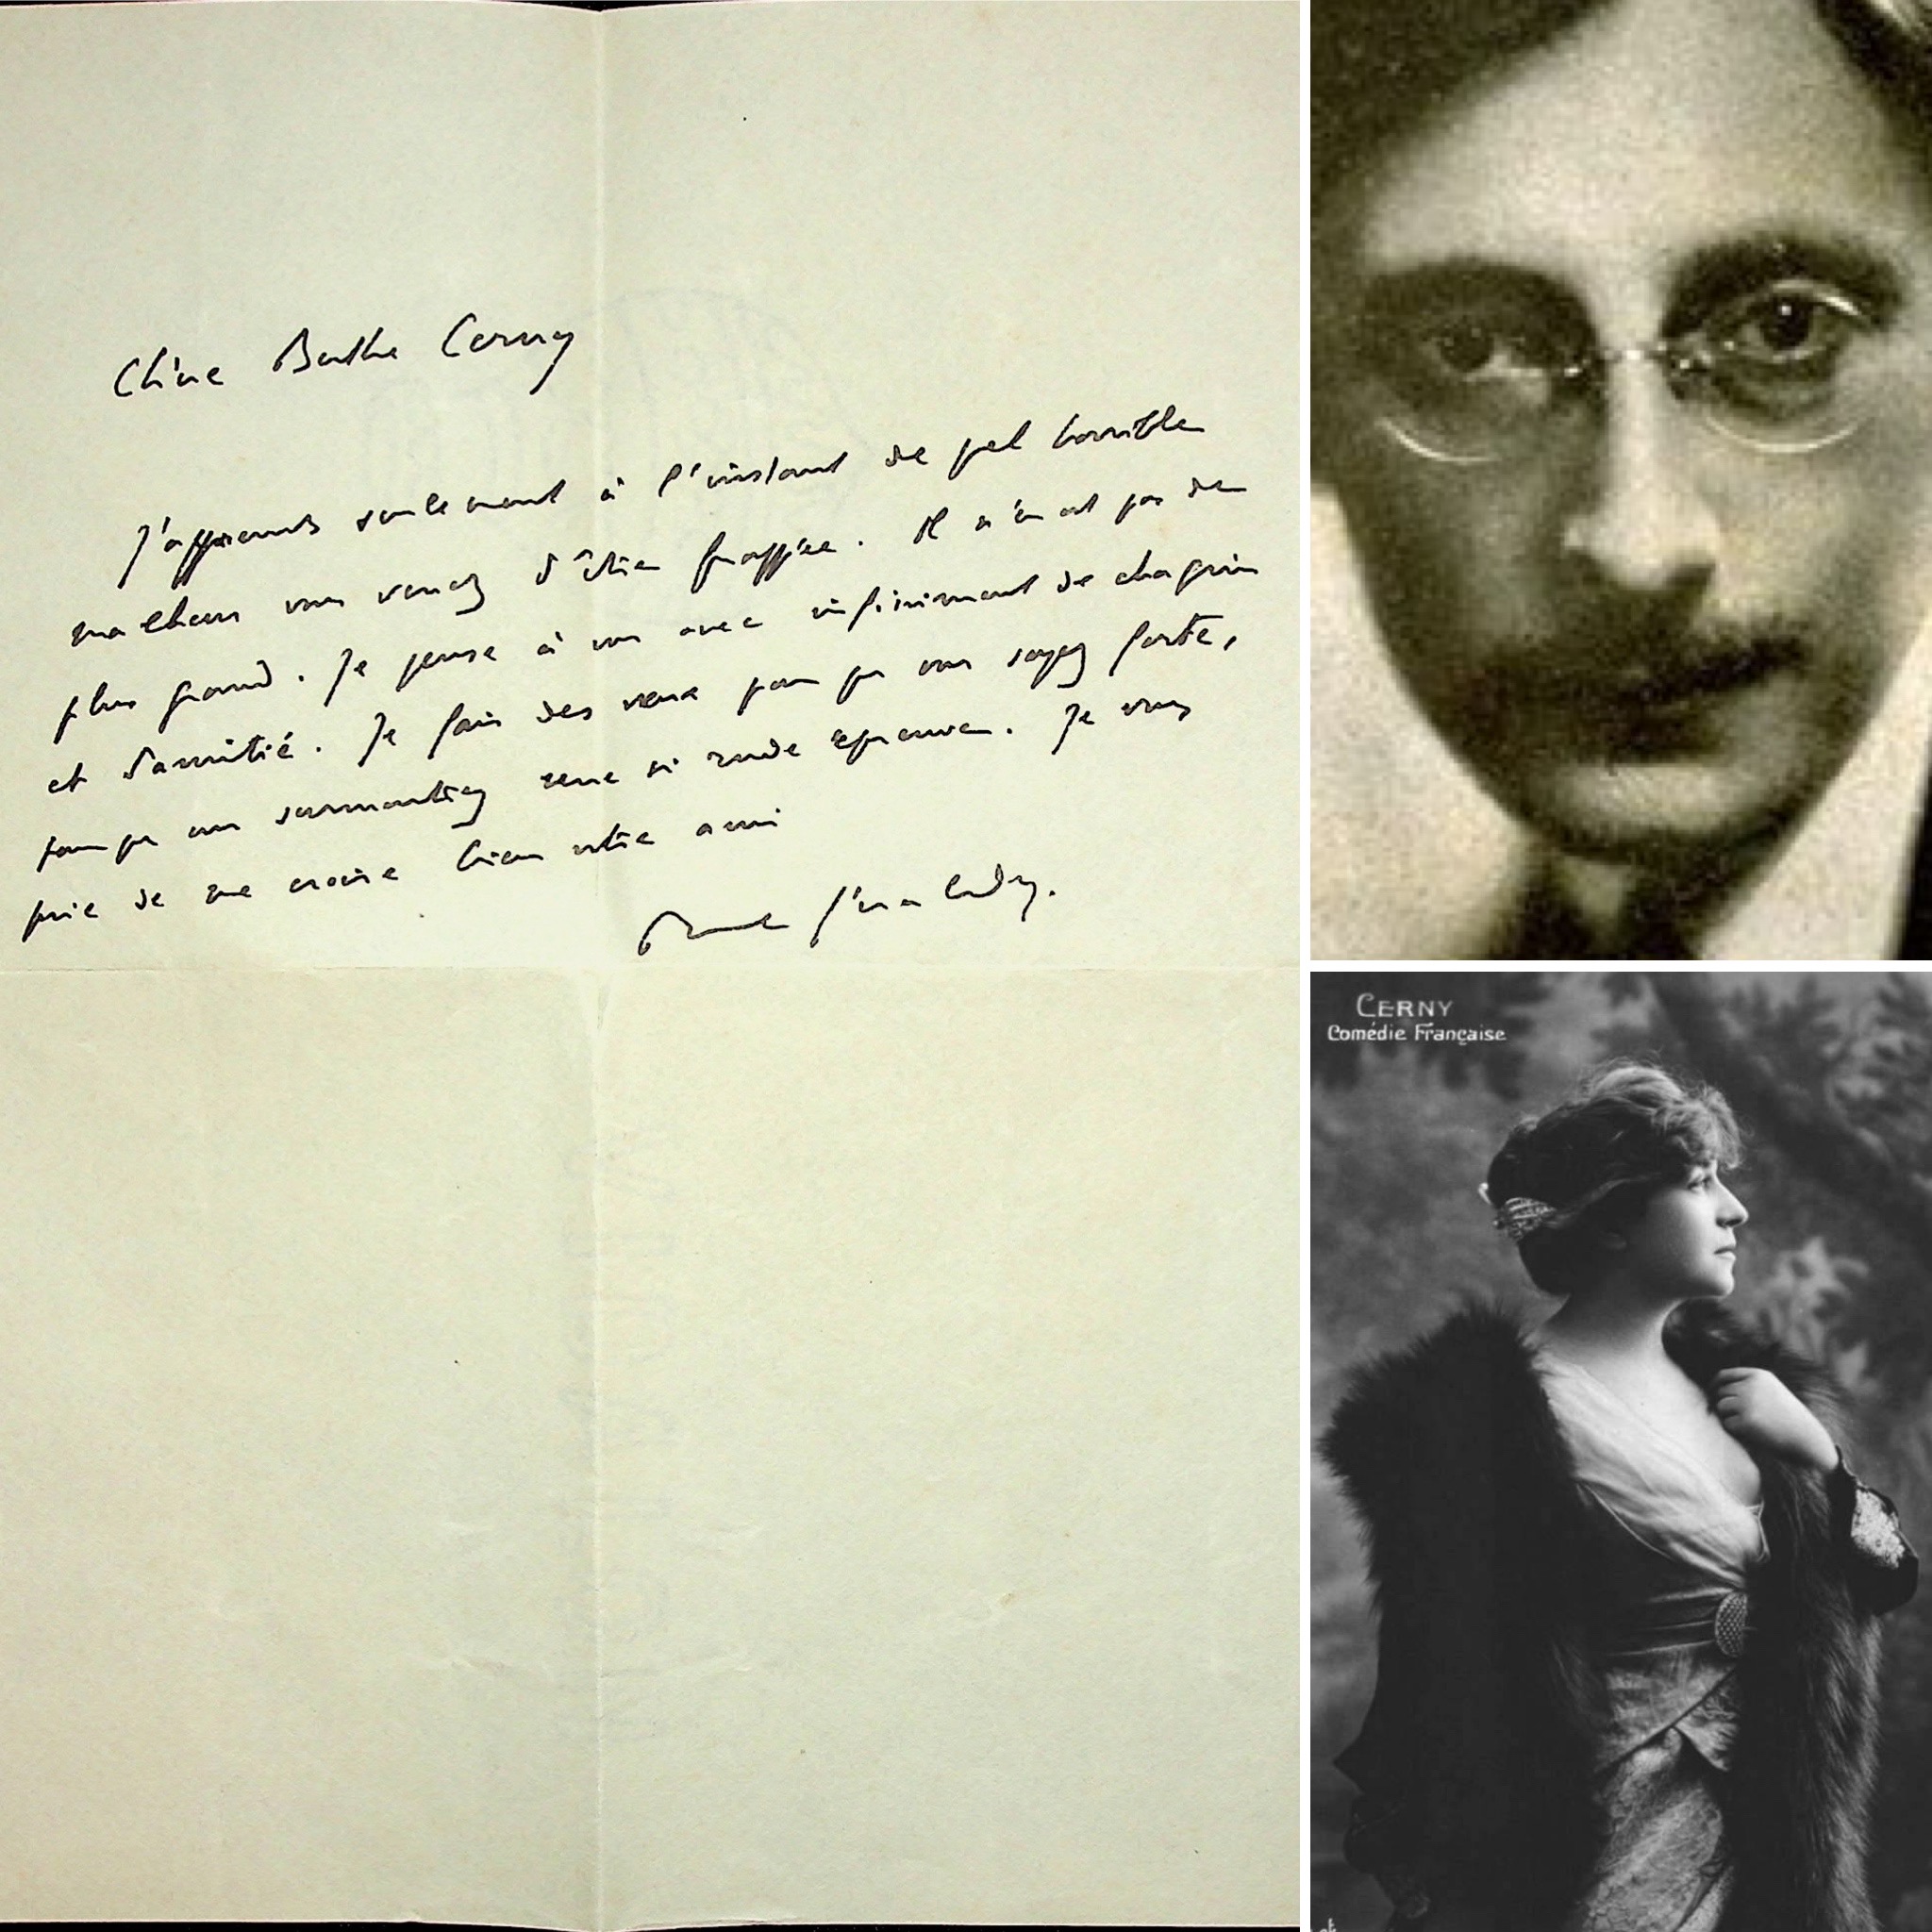 Chère Berthe Cerny
J'apprends seulement à l'instant de quel horrible
malheur vous venez d'être frappée. Il n'en est pas de
plus grand. Je pense à vous avec infiniment de chagrin
et d'amitié. Je fais des vœux pour que vous soyez forte,
pour que vous surmontiez cette si rude épreuve. Je vous
prie de me croire bien votre ami
CERNY
Comédie Française